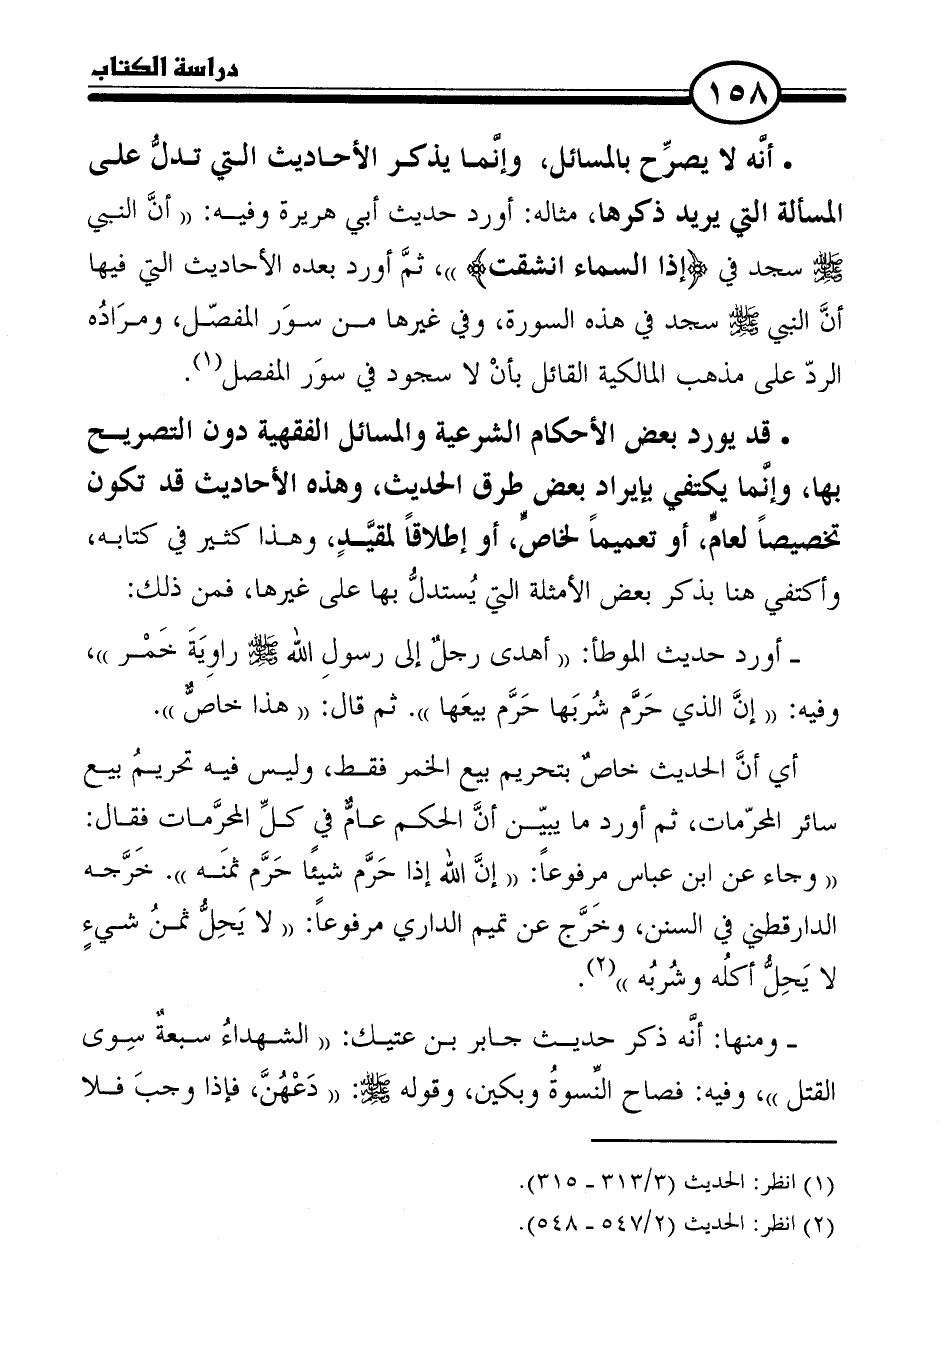 دراسة الكتاب
١٥٨
• أنَّه لا يصرِّح بالمسائل، وإنَّما يذكر الأحاديث التي تدلُّ على
المسألة التي يريد ذكرها، مثاله: أورد حديث أبي هريرة وفيه: « أنَّ النبي
ﷺ سجد في ﴿إذا السماء انشقت﴾ »، ثمَّ أورد بعده الأحاديث التي فيها
أنَّ النبي ﷺ سجد في هذه السورة، وفي غيرها من سوَر المفصّل، ومرَادُه
الردّ على مذهب المالكية القائل بأنْ لا سجود في سوَر المفصل(١).
• قد يورد بعض الأحكام الشرعية والمسائل الفقهية دون التصريح
بها، وإنَّما يكتفي بإيراد بعض طرق الحديث، وهذه الأحاديث قد تكون
تخصيصاً لعامٍّ، أو تعميماً لخاصٍّ، أو إطلاقاً لمقيَّدٍ، وهذا كثير في كتابه،
وأكتفي هنا بذكر بعض الأمثلة التي يُستدلُّ بها على غيرها، فمن ذلك:
ـ أورد حديث الموطأ: « أهدى رجلٌ إلى رسولِ الله ﷺ راويَةَ خَمْر »،
وفيه: « إنَّ الذي حَرَّم شُربَها حَرَّم بيعَها ». ثم قال: « هذا خاصٌّ ».
أي أنَّ الحديث خاصٌ بتحريم بيع الخمر فقط، وليس فيه تحريمُ بيع
سائر المحرّمات، ثم أورد ما يبيّن أنَّ الحكم عامٌّ في كلِّ المحرَّمات فقال:
« وجاء عن ابن عباس مرفوعاً: « إنَّ اللهَ إذا حَرَّم شيئًا حَرَّم ثمنَه ». خَرَّجه
الدارقطني في السنن، وخَرَّج عن تميم الداري مرفوعاً: « لا يَحِلُّ ثمنُ شيءٍ
لا يَحِلُّ أكلُه وشُربُه »(٢).
ـ ومنها: أنَّه ذكر حديث جابر بن عتيك: « الشهداءُ سبعةٌ سِوى
القتل »، وفيه: فصاح النِّسوةُ وبكين، وقوله ﷺ: « دَعْهُنَّ، فإذا وجبَ فلا
(١) انظر: الحديث (٣١٣/٣ ـ ٣١٥).
(٢) انظر: الحديث (٥٤٧/٢ ـ ٥٤٨).